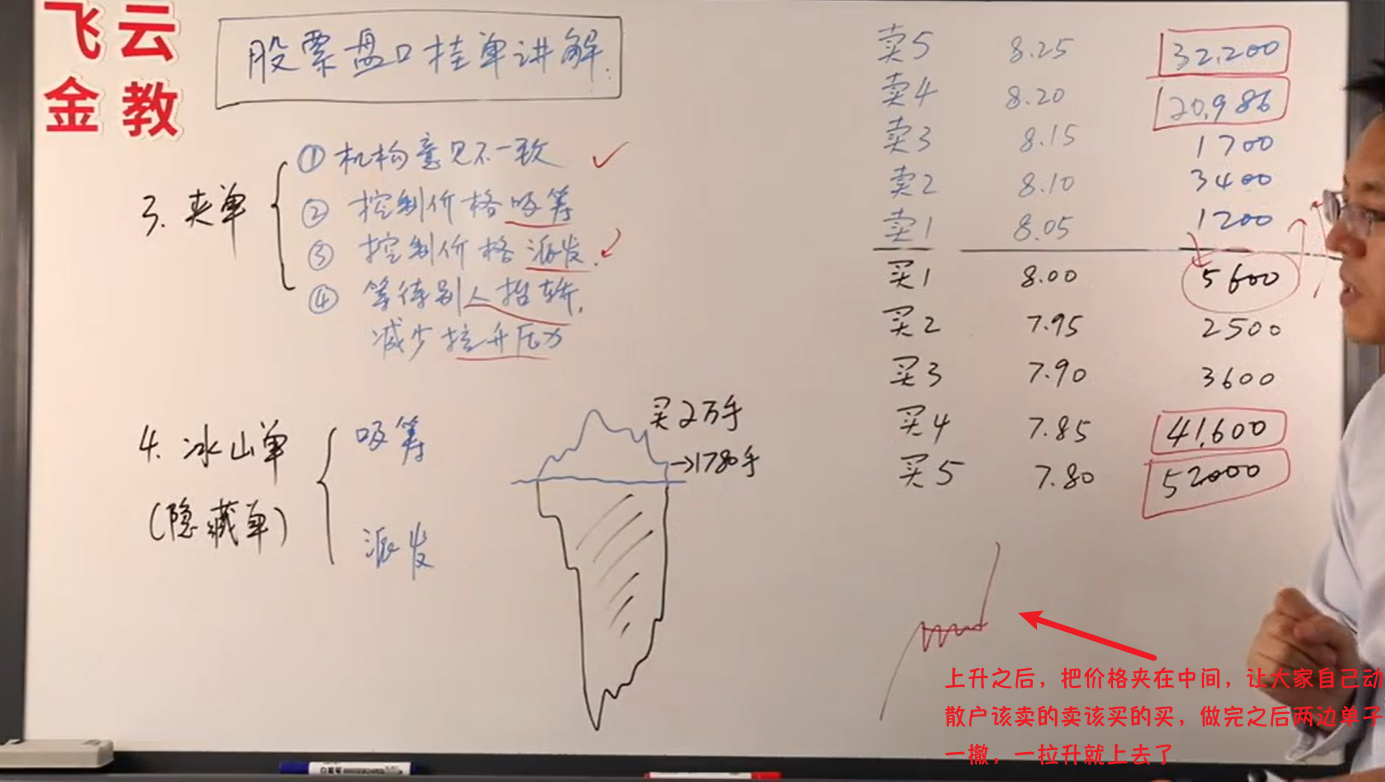 飞云
金教
股票盘口挂单讲解.
3. 夹单
① 机构意见不一致
② 控制价格吸筹
③ 控制价格派发.
④ 等待别人抬轿,
减少拉升压力
4. 冰山单
(隐藏单)
吸筹
派发
买2万手
→1780手
卖5 8.25 32,200
卖4 8.20 20,986
卖3 8.15 1700
卖2 8.10 3400
卖1 8.05 1200
买1 8.00 5600
买2 7.95 2500
买3 7.90 3600
买4 7.85 41,600
买5 7.80 52000
上升之后，把价格夹在中间，让大家自己动
散户该卖的卖该买的买，做完之后两边单子
一撤，一拉升就上去了